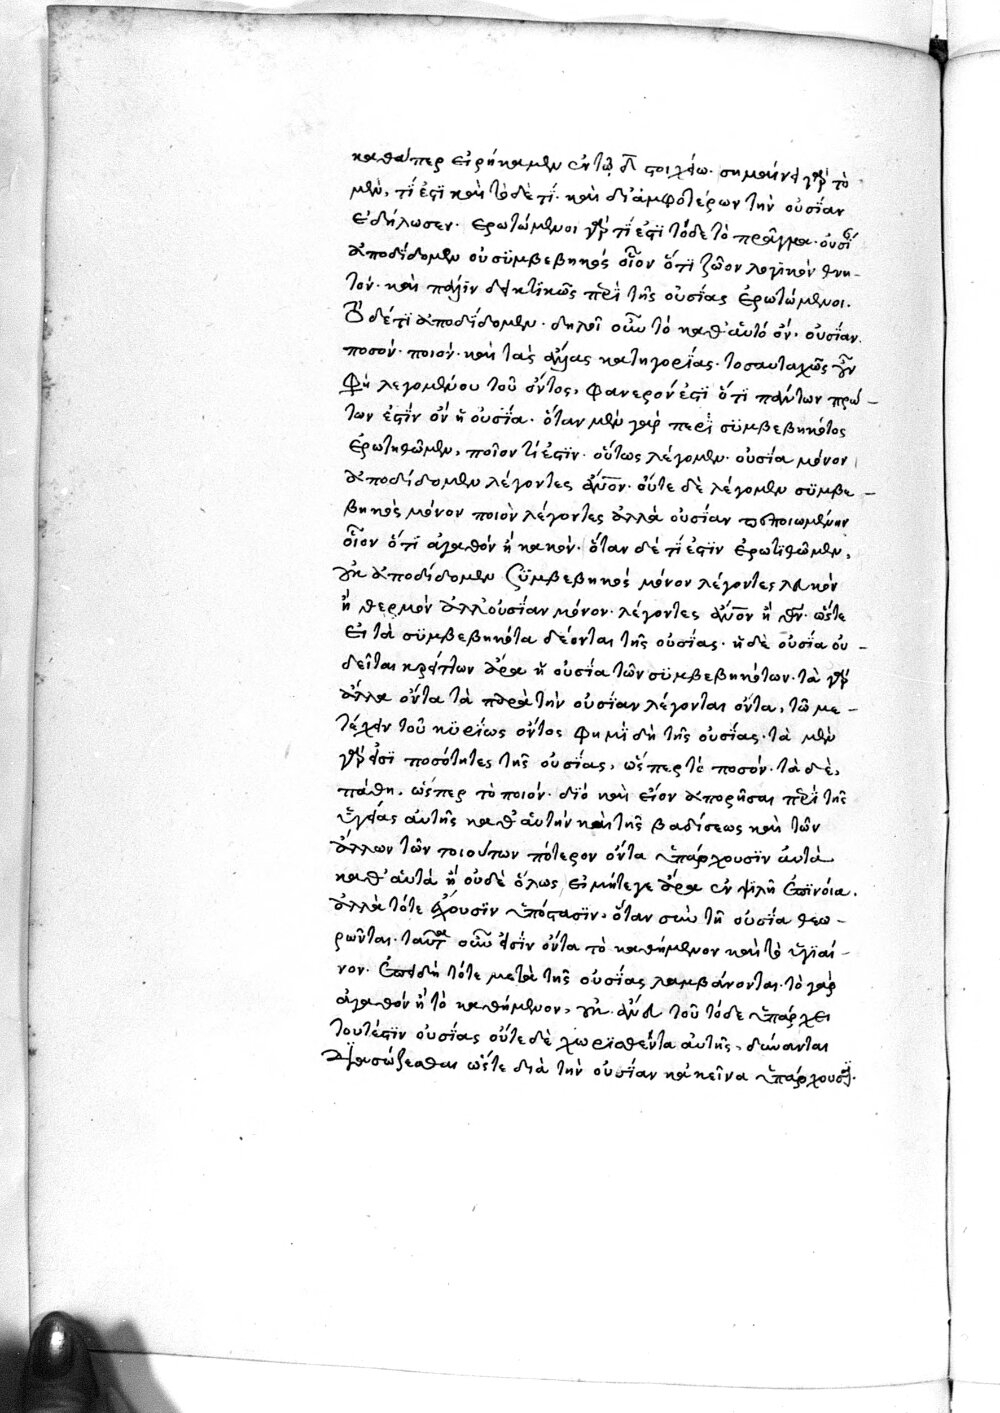 καθάπερ εἰρήκαμεν ἐν τῷ δ̅ στοιχείῳ· σημαίνει γὰρ τὸ
μὲν, τί ἐστϊ καὶ τὸ δὲ τί· καὶ δι' ἀμφοτέρων τὴν οὐσΐαν
ἐδήλωσεν· ἐρωτώμενοι γὰρ τί ἐστϊ τόδε τὸ πρᾶγμα· οὐσί
ἀποδίδομεν οὐ συμβεβηκός οἷον ὅτι ζῶον λογικὸν θνη-
τόν· καὶ πάλϊν δεικτικῶς περὶ τῆς οὐσίας ἐρωτώμενοι.
τόδέ τι ἀποδίδομεν· δηλοῖ οὖν τὸ καθ' αὑτό ὄν· οὐσΐαν.
ποσόν· ποιόν· καὶ τὰς ἄλλας κατηγορίας· τοσαυταχῶς οὖν
φησὶ λεγομένου τοῦ ὄντος, φανερόν ἐστϊ ὅτι πάντων πρώ-
των ἐστϊν ὂν ἡ οὐσΐα· ὅταν μὲν γὰρ περὶ συμβεβηκότος
ἐρωτηθῶμεν, ποῖον τί ἐστϊν· οὕτως λέγομεν· οὐσία μόνον
ἀποδίδομεν λέγοντες ἄνον· οὔτε δὲ λέγομεν συμβε-
βηκὸς μόνον ποιὸν λέγοντες ἀλλὰ οὐσίαν πεποιωμένην
οἷον ὅτι ἀγαθόν ἢ κακόν· ὅταν δέ τί ἐστϊν ἐρωτϊθῶμεν,
οὐκ ἀποδίδομεν συμβεβηκός μόνον λέγοντες λευκόν
ἢ θερμόν ἀλλ' οὐσΐαν μόνον· λέγοντες ἄνον ἢ θν· ὥστε
εἰ τὰ συμβεβηκότα δέονται τῆς οὐσίας· ἡ δὲ οὐσία οὐ-
δεῖται κρείττων ἄρα ἡ οὐσία τῶν συμβεβηκότων· τὰ γὰρ
ἄλλα ὄντα τὰ παρὰ τὴν οὐσϊαν λέγονται ὄντα, τῶ με-
τέχειν τοῦ κυρίως ὄντος φημὶ δὴ τῆς οὐσίας· τὰ μὲν
γάρ εἰσϊ ποσότητες τῆς οὐσίας, ὥσπερ τὸ ποσόν· τὰ δὲ,
πάθη, ὥσπερ τὸ ποιόν· διό καὶ εἰον ἀπορῆσαι περὶ τῆς
ὑγείας αὐτῆς καθ' αὑτήν καὶ τῆς βαδίσεως καὶ τῶν
ἄλλων τῶν τοιούτων πότερον ὄντα ὑπάρχουσϊν αὐτὰ
καθ' αὑτὰ ἢ οὐδὲ ὅλως εἰ μήτεγε ἄρα ἐν ψιλῆ ἐπϊνοία.
ἀλλὰ τότε ἔχουσϊν ὑπόστασιν, ὅταν σὺν τῆ οὐσία θεω-
ρῶνται· ταῦτα οὖν εἰσϊν ὄντα τὸ καθήμενον καὶ τὸ ὑγϊαῖ-
νον· ἐπειδὴ τότε μετὰ τῆς οὐσίας λαμβάνονται· τὸ γὰρ
ἀγαθόν ἢ τὸ καθήμενον, οὐκ ἄνευ τοῦ τόδε ὑπάρχει
τουτέστϊν οὐσΐας οὔτε δὲ χωρϊσθέντα αὐτῆς, δύνανται
διασώζεσθαι ὥστε διὰ τὴν οὐσΐαν κἀκεῖνα ὑπάρχουσϊ.